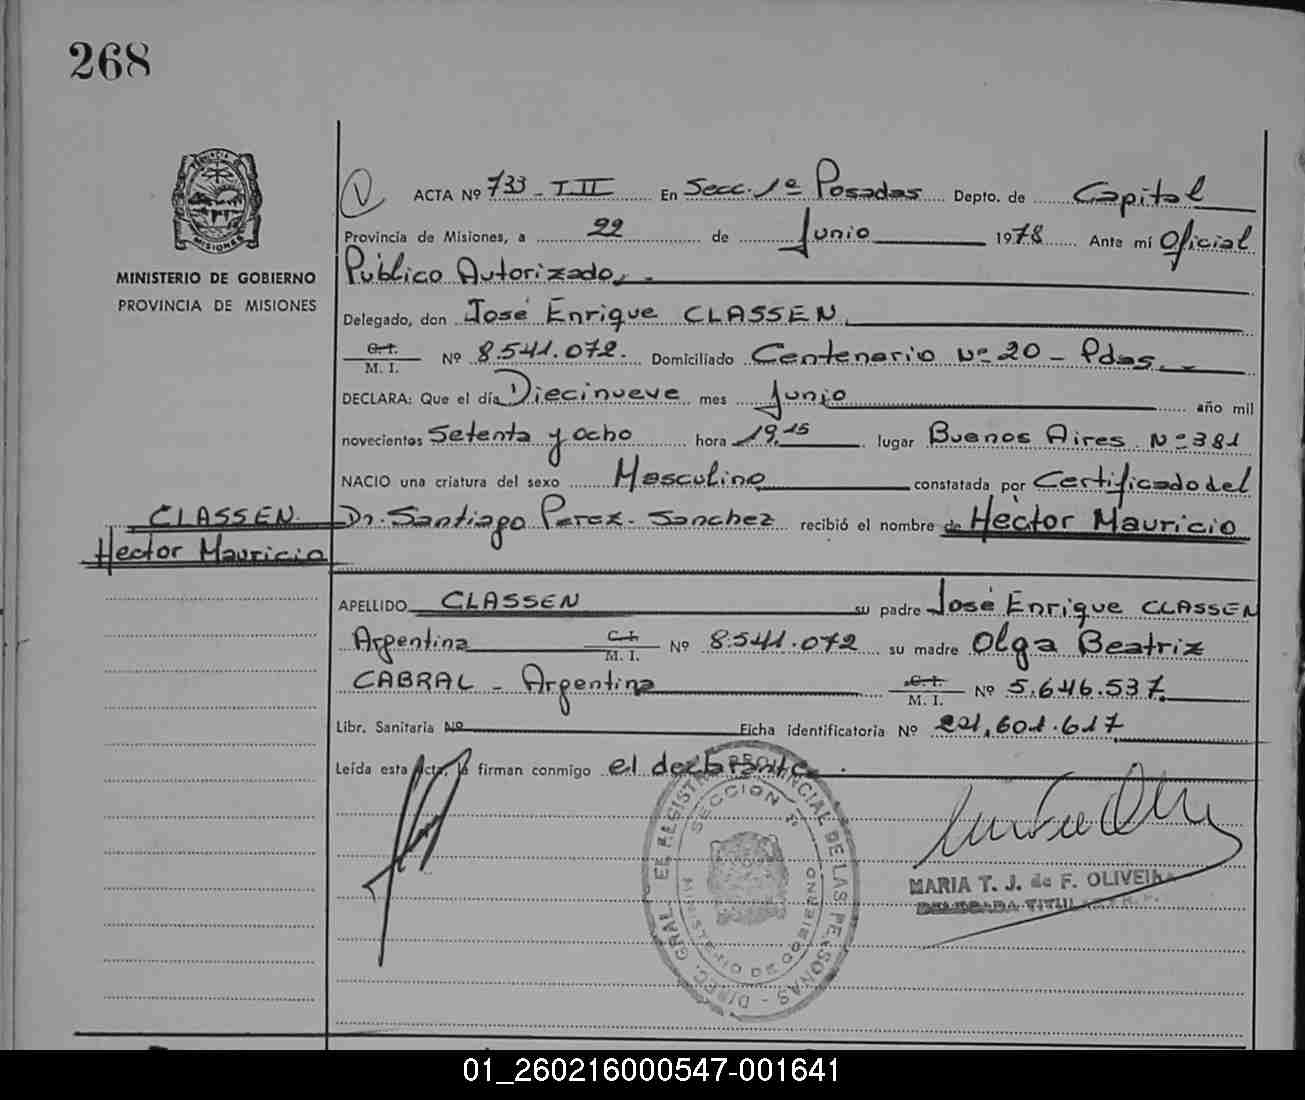 268
ACTA Nº 733 - T.II En Secc. 1ª Posadas Depto. de Capital
Provincia de Misiones, a 22 de Junio 1978 Ante mí Oficial
MINISTERIO DE GOBIERNO
PROVINCIA DE MISIONES
Público Autorizado, -
Delegado, don José Enrique CLASSEN
C. I. M. I. Nº 8.541.072. Domiciliado Centenario Nº 20 - Pdas.
DECLARA: Que el día Diecinueve mes Junio año mil
novecientos Setenta y ocho hora 19,15 lugar Buenos Aires Nº 381
NACIO una criatura del sexo Masculino constatada por Certificado del
CLASSEN Dr. Santiago Perez - Sanchez recibió el nombre de Hector Mauricio
Hector Mauricio
APELLIDO CLASSEN su padre José Enrique CLASSEN
Argentina C. I. M. I. Nº 8.541.072 su madre Olga Beatriz
CABRAL - Argentina C. I. M. I. Nº 5.646.537
Libr. Sanitaria Nº Ficha identificatoria Nº 221,601.617
Leída esta acta, la firman conmigo el declarante.
DIREC. GRAL. REGISTRO PROVINCIAL DE LAS PERSONAS
SECCION 1ª
MINISTERIO DE GOBIERNO
MARIA T. J. de F. OLIVEIRA
DELEGADA TITULAR
01_260216000547-001641